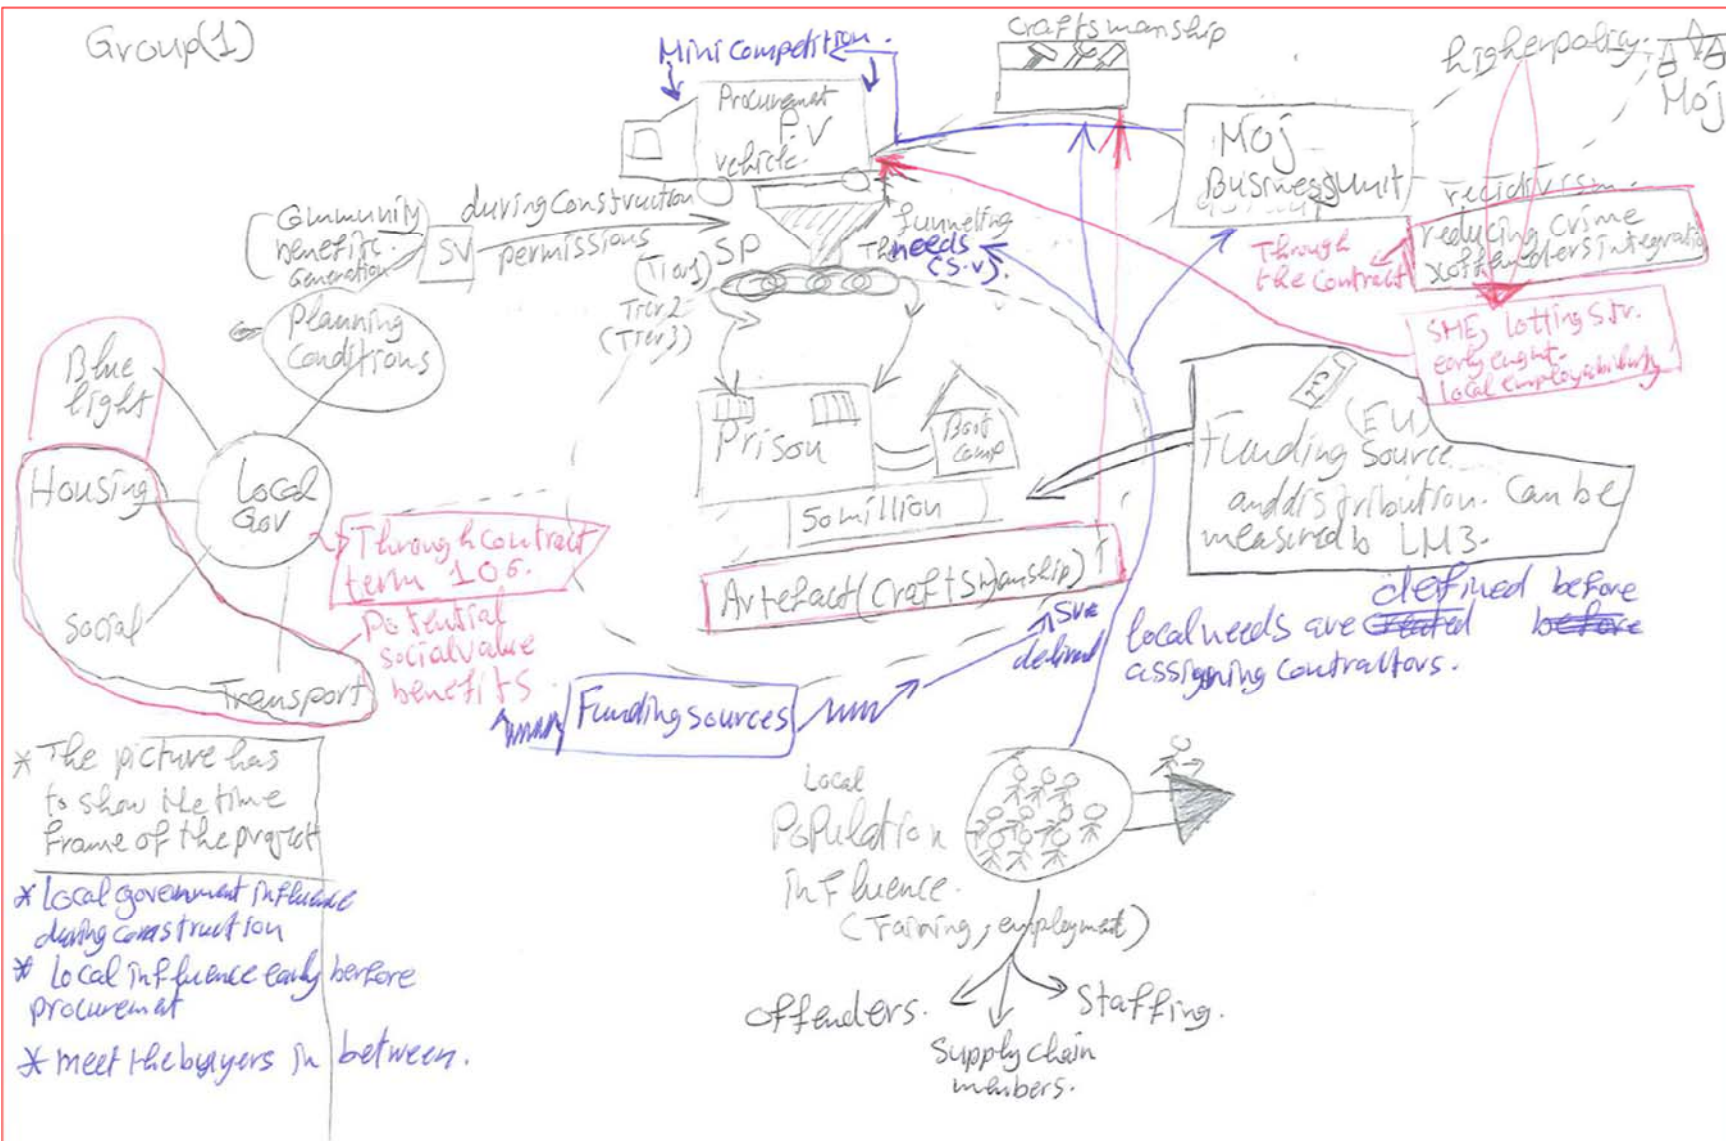 Group(1)
Mini competition.
craftsmanship
higher policy.
Moj
Procuremat
P.V
vehicle.
Moj
Business Unit
recidivism.
reducing Crime
offenders integratio
Through
the contract
Community
benefits.
Generation
SV
during Construction
permissions
SP
(Tier1)
Tier2
(Tier3)
funneling
The needs
(S.V).
SME, lotting str.
early engnt.
local employability
Planning
Conditions
Blue
light
Housing
Local
Gov
Social
Transport
Through contract
term 106.
Potential
social value
benefits.
Prison
Boot
Camp
50 million
Artefact (Craftsmanship)
(EU)
Funding Source
and distribution. Can be
measured b LM3.
Funding sources
defined before
local needs are created before
assigning contractors.
* The picture has
to show the time
frame of the project
* Local government influence
during construction
* Local influence early berfore
procuremat
* meet the buyers in between.
Local
Population
influence.
(Training, employment)
offenders.
Staffing.
Supply chain
members.